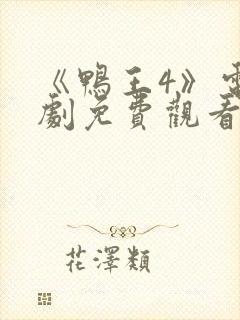 《鴨王4》電
劇免費觀看
花澤類